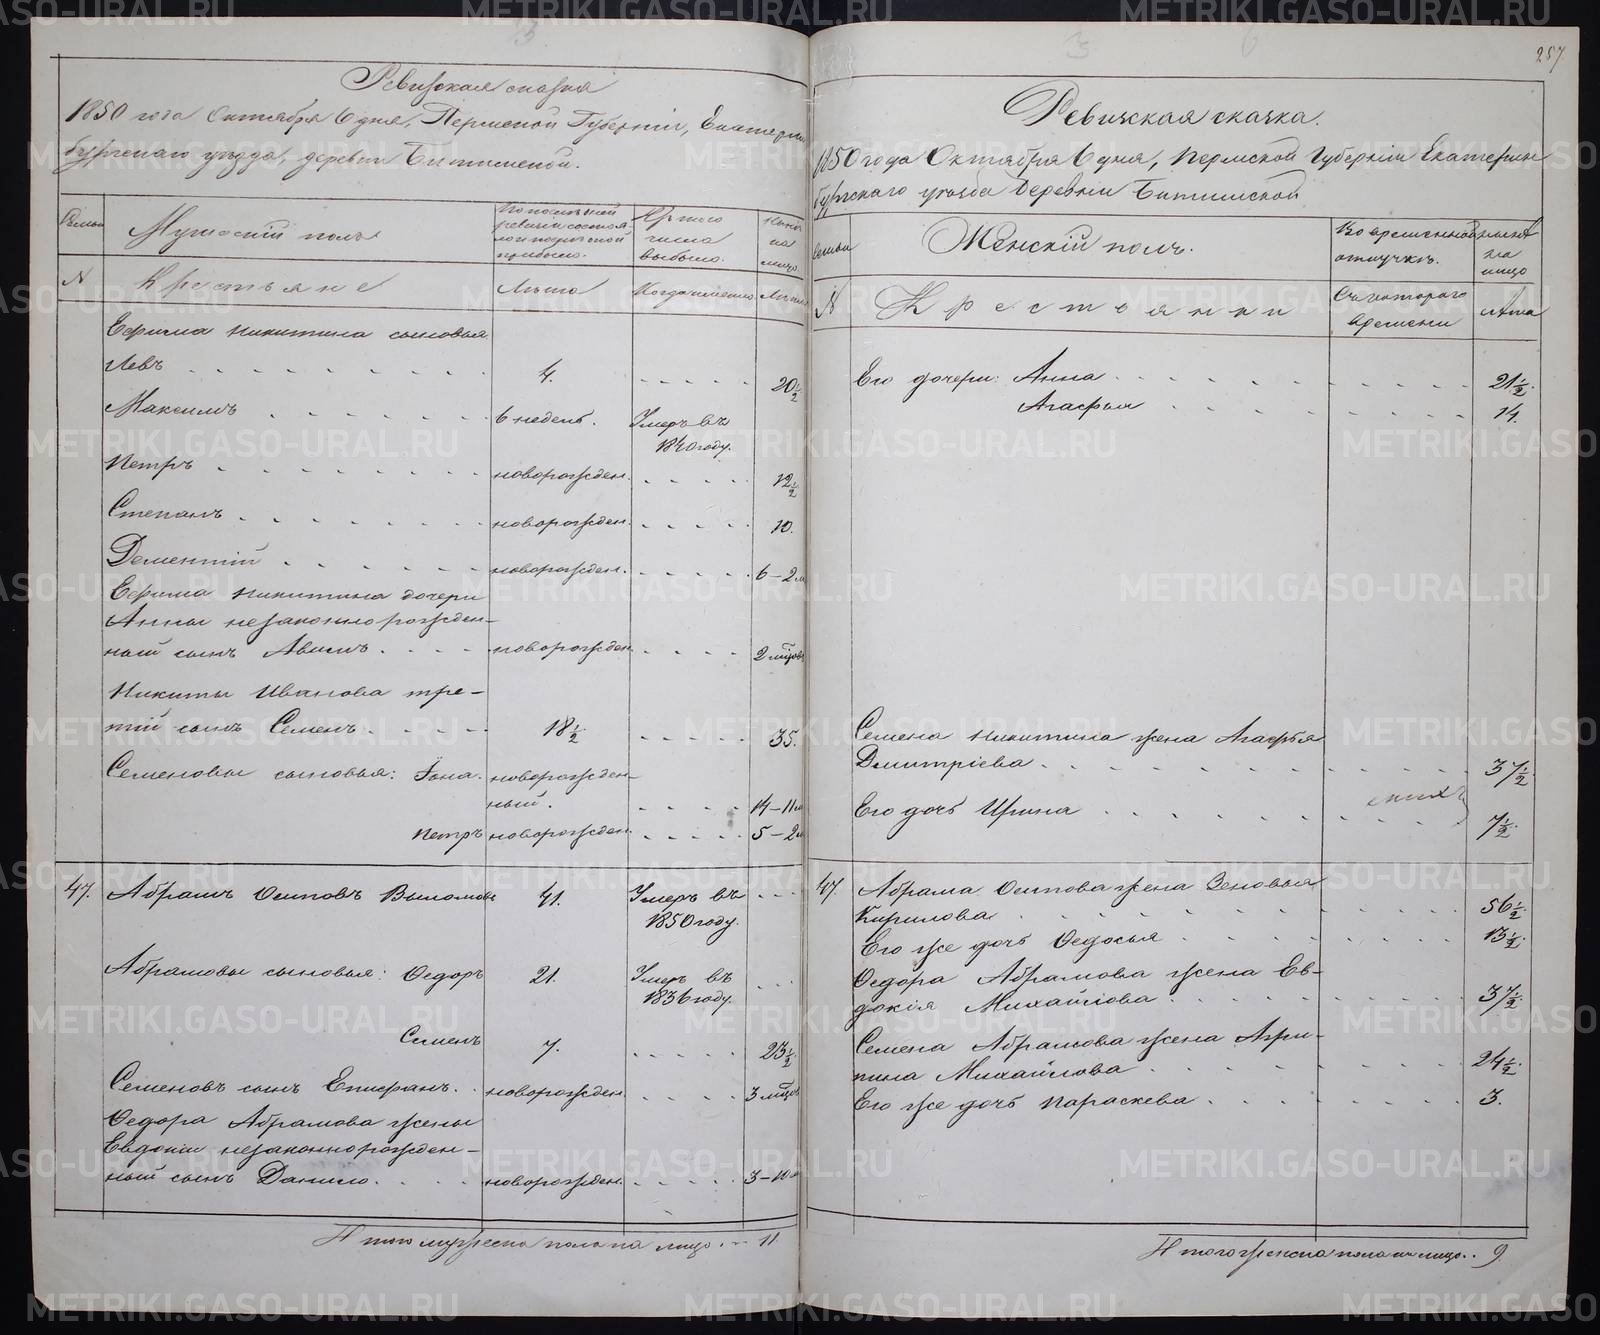 Ревизская сказка
1850 года Октября 6 дня, Пермской Губерніи, Екатерин
бургскаго уѣзда, деревни Битимской.
Семьи
Мужескій полъ
По послѣдней
ревизіи состоя-
ло и послѣ той
прибыло.
Изъ того
числа
выбыло.
Нынѣ
на
лицо.
N
Крестьяне
Лѣта
Когда именно
Лѣта
Ефима Никитина сыновья
Левъ 4. 20½
Максимъ 6 недель. Умеръ въ
1840 году.
Петръ новорожден. 12½
Степанъ новорожден. 10.
Дементій новорожден. 6-2м
Ефима Никитина дочери
Анны незаконнорожден-
ный сынъ новорожден 2 мѣсов
Никиты Иванова тре-
тій сынъ Семенъ 18½ 35.
Семеновы сыновья: Іона. новорожден-
ный. 14-11м
Петръ новорожден. 5-2м
47. Абрамъ Осиповъ 41. Умеръ въ
1850 году.
Абрамовы сыновья: Ѳедоръ 21. Умеръ въ
1836 году.
Семенъ 7. 23½
Семеновъ сынъ Епифанъ. новорожден. 3 мѣсов
Ѳедора Абрамова жены
Евдокіи незаконнорожден-
ный сынъ Данило. новорожден. 3-10м
Итого мужеска пола на лицо. 11
257.
Ревижская скачка.
1850 года Октября 6 дня, Пермской Губерніи Екатерин
бургскаго уѣзда Деревніи Битимской
Семьи
Женскій полъ.
Во временной
отлучкѣ.
Нынѣ
на
лицо
N
Крестьянки
Съ котораго
времени
Лѣта
Его дочери: Анна 21½.
Агафья 14.
Семена Никитина жена Агафья
Дмитріева 37½
Его дочь Ирина 7½.
47. Абрама Осипова жена Зеновья
Кирилова 56½
Его же дочь Ѳедосья 13½.
Ѳедора Абрамова жена Ев-
докія Михайлова 37½.
Семена Абрамова жена Агри-
пина Михайлова 24½.
Его же дочь Параскева 3.
Итого женска пола на лицо.. 9.
METRIKI.GASO-URAL.RU